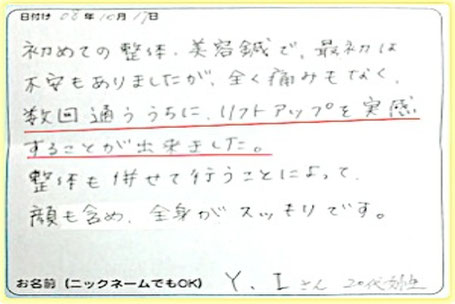 日付け 08年10月17日
初めての整体、美容鍼で、最初は
不安もありましたが、全く痛みもなく、
数回通ううちに、リフトアップを実感
することが出来ました。
整体も併せて行うことによって、
顔も含め、全身がスッキリです。
お名前(ニックネームでもOK) Y. I さん 20代